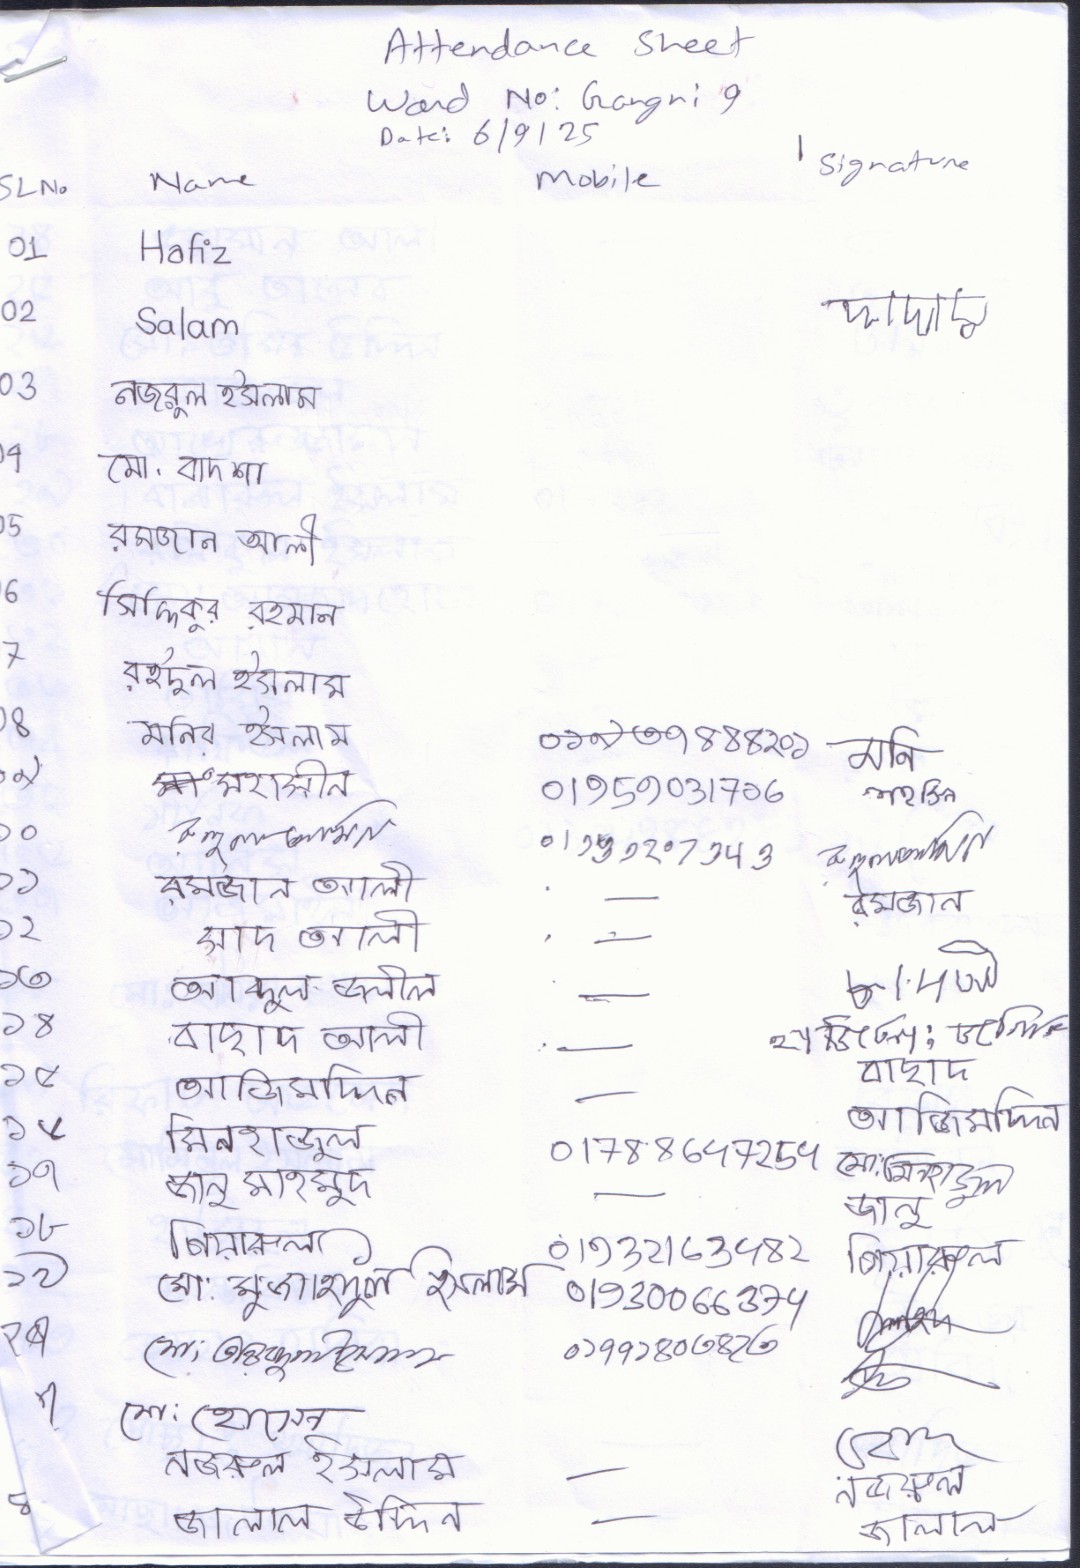 Attendance Sheet
Ward No: Gangni 9
Date: 6/9/25
SL No Name Mobile Signature
01 Hafiz
02 Salam
03 নজরুল ইসলাম
04 মো. বাদশা
05 রমজান আলী
06 সিদ্দিকুর রহমান
7 রইদুল ইসলাম
08 মনির ইসলাম মনি
০৯ মহাসীন 01959031706
১০ রুহুল আমিন রুহুল আমিন
১১ রমজান আলী — রমজান
১২ সাদ আলী —
১৩ আব্দুল জলীল —
১৪ বাছাদ আলী — বাছাদ
১৫ আজিমদ্দিন — আজিমদ্দিন
১৬ মিনহাজুল 01788647254 মো: মিনহাজুল
১৭ জানু মাহমুদ — জানু
১৮ জিয়ারুল 01932163482 জিয়ারুল
১৯ মো: মুজাহিদুল ইসলাম 01930066374
মো:
মো: হোসেন
নজরুল ইসলাম — নজরুল
জালাল উদ্দিন — জালাল